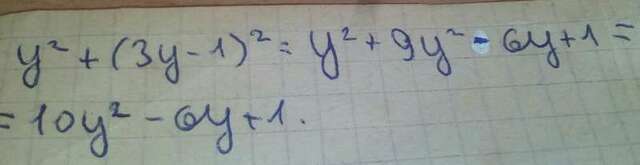 y² + (3y-1)² = y² + 9y² - 6y + 1 =
= 10y² - 6y + 1.